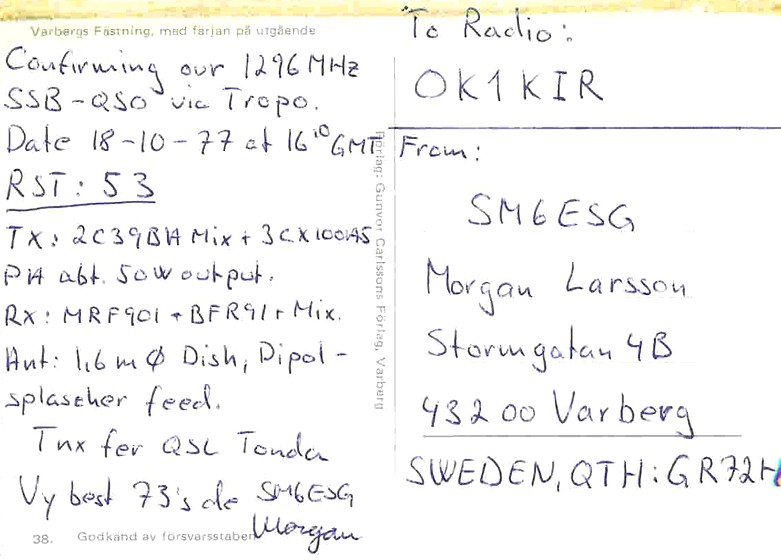 Varbergs Fästning, med färjan på utgående
Confirming our 1296 MHz
SSB-QSO via Tropo.
Date 18-10-77 at 16¹⁰ GMT
RST: 53
TX: 2C39BA Mix + 3CX100A5
PA abt. 50W output.
Rx: MRF901 + BFR91 + Mix.
Ant: 1,6 m Ø Dish, Dipol-
splascher feed.
Tnx fer QSL Tonda
Vy best 73's de SM6ESG
Morgan
38. Godkänd av försvarsstaben
Förlag: Gunvor Carlssons Förlag, Varberg
To Radio:
OK1KIR
From:
SM6ESG
Morgan Larsson
Stormgatan 4B
432 00 Varberg
SWEDEN, QTH: GR72H